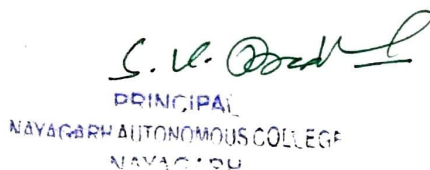 S. K.
PRINCIPAL
NAYAGARH AUTONOMOUS COLLEGE
NAYAGARH